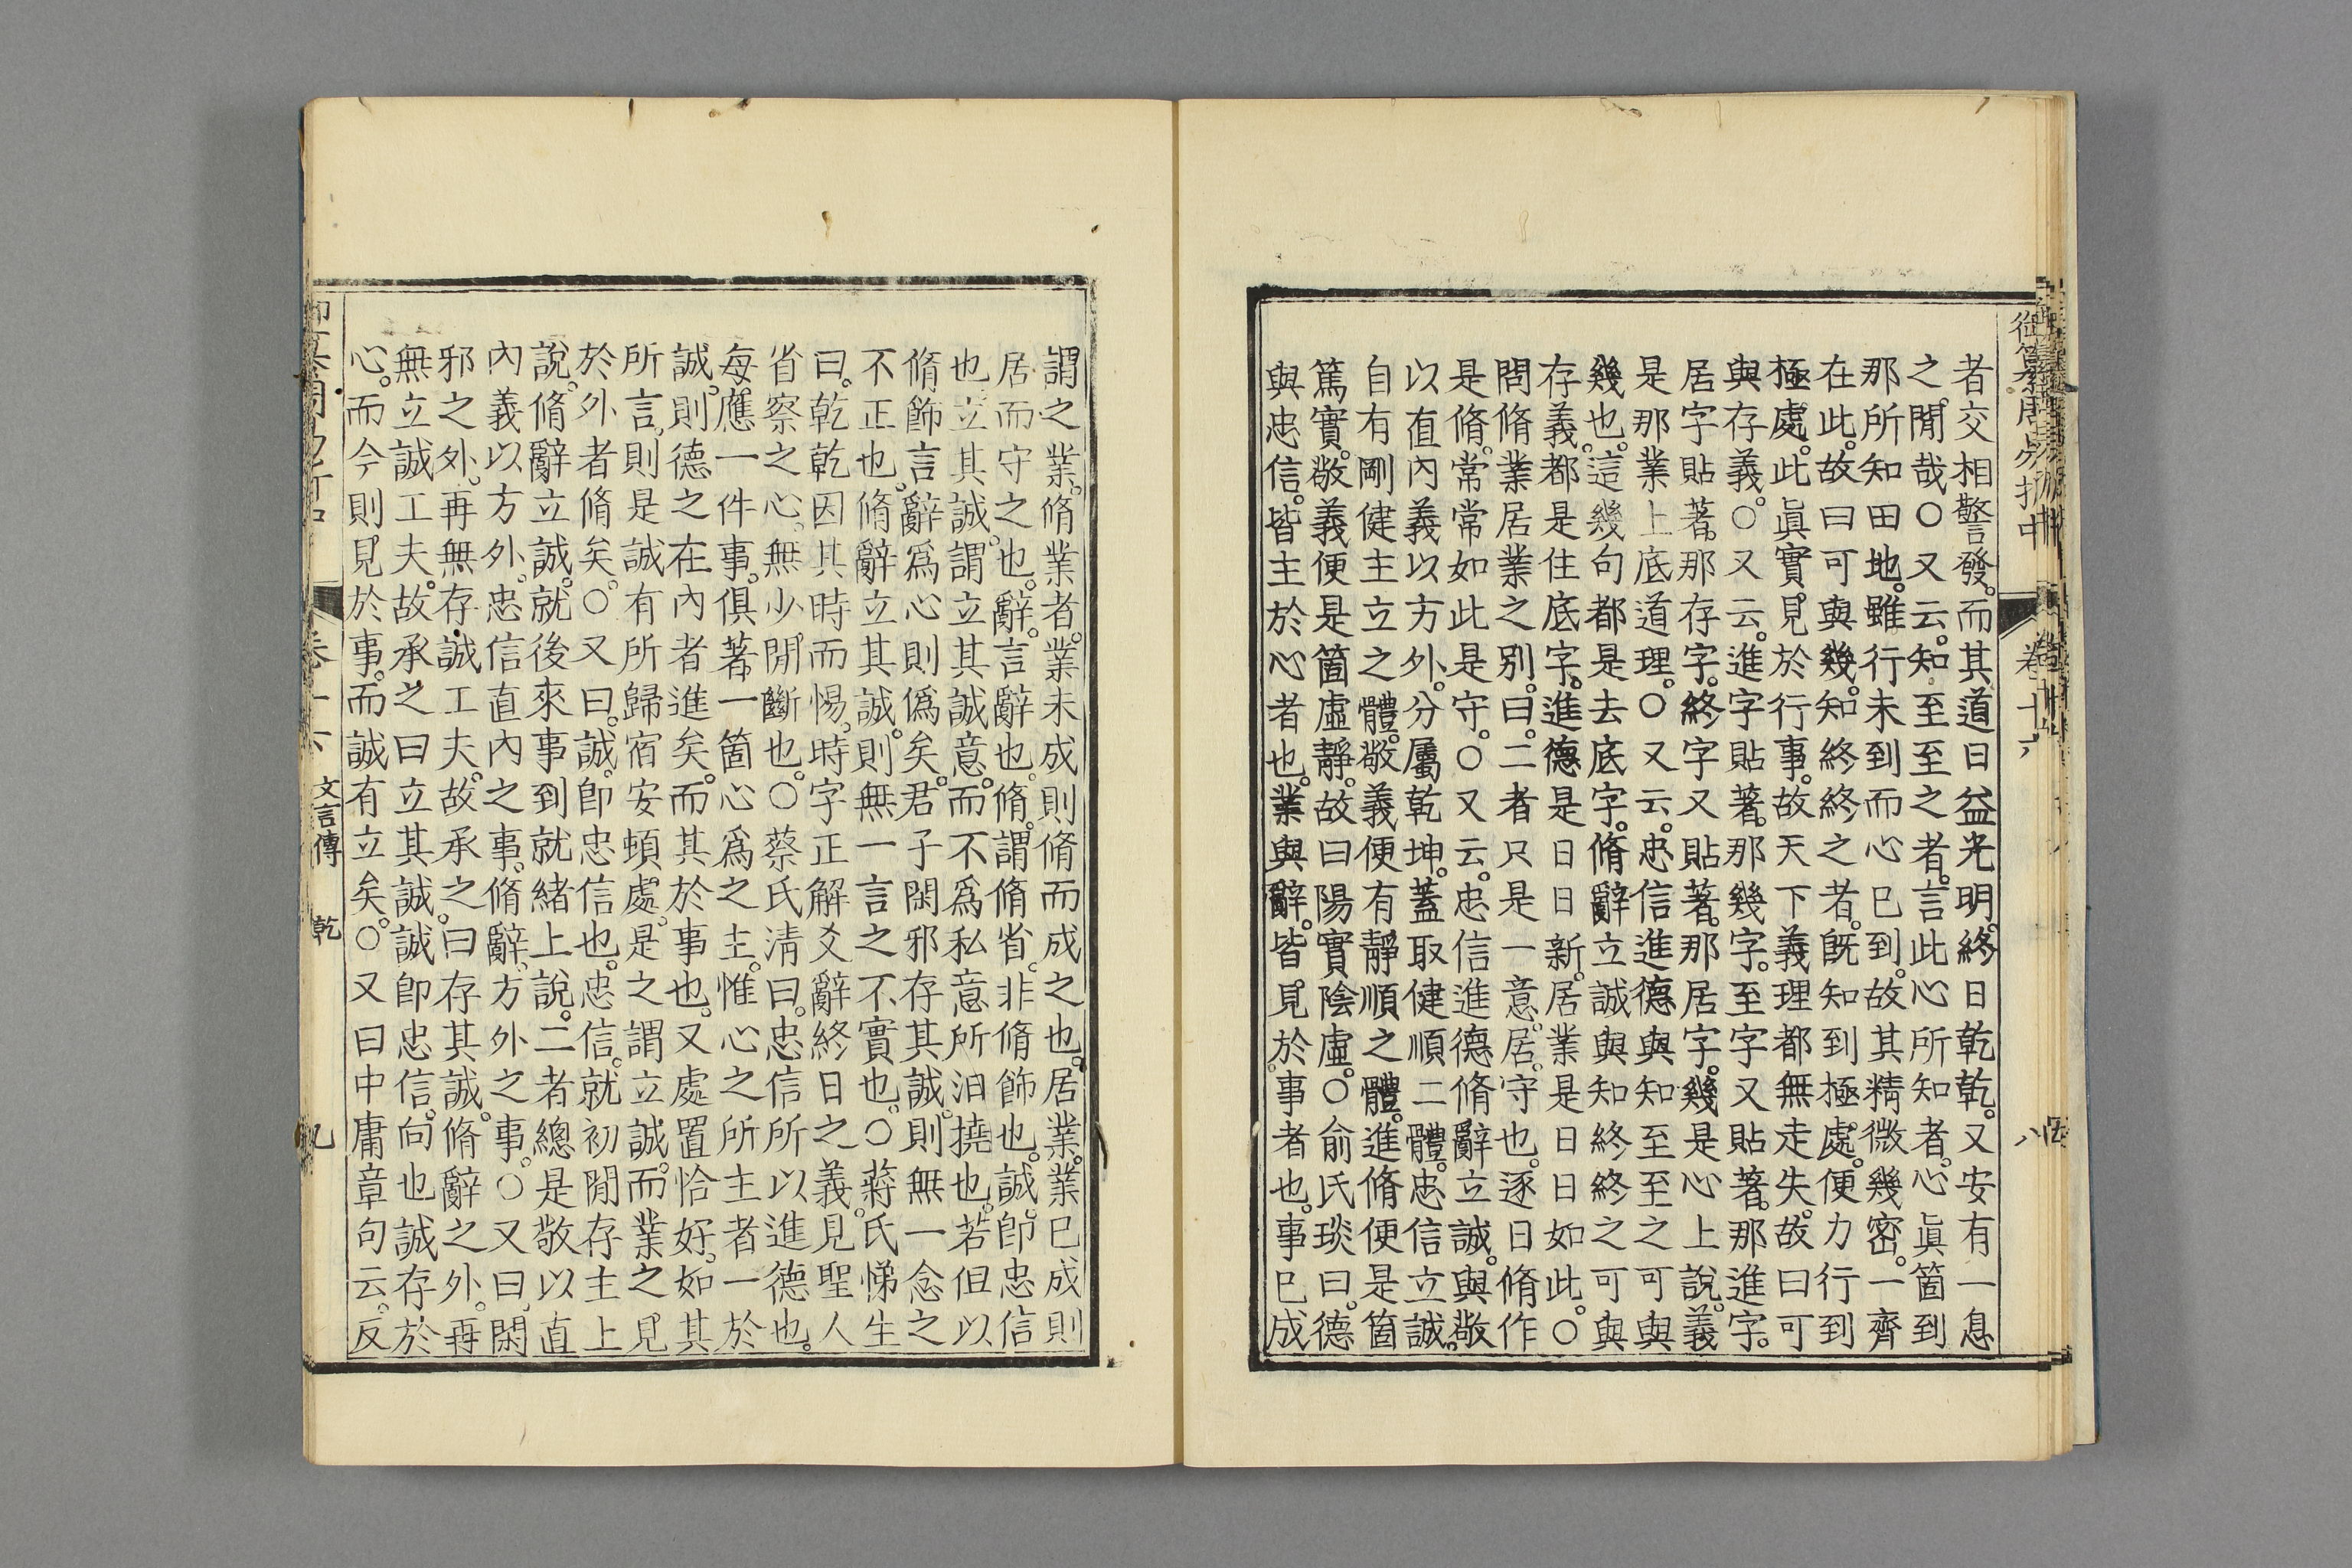 者交相警發。而其道日益光明。終日乾乾。又安有一息
之閒哉○又云。知至至之者。言此心所知者。心眞箇到
那所知田地。雖行未到而心已到。故其精微幾密。一齊
在此。故曰可與幾。知終終之者。旣知到極處。便力行到
極處。此眞實見於行事。故天下義理都無走失。故曰可
與存義。○又云。進字貼著那幾字。至字又貼著那進字。
居字貼著那存字。終字又貼著那居字。幾是心上說。義
是那業上底道理。○又云。忠信進德與知至至之可與
幾也。這幾句都是去底字。脩辭立誠與知終終之可與
存義。都是住底字。進德是日日新。居業是日日如此。○
問脩業居業之別。曰。二者只是一意。居。守也。逐日脩作
是脩。常常如此是守。○又云。忠信進德脩辭立誠。與敬
以直內義以方外。分屬乾坤。蓋取健順二體。忠信立誠。
自有剛健主立之體。敬義便有靜順之體。進脩便是箇
篤實。敬義便是箇虛靜。故曰陽實陰虛。○俞氏琰曰。德
與忠信。皆主於心者也。業與辭。皆見於事者也。事已成
謂之業。脩業者。業未成則脩而成之也。居業。業已成則
居而守之也。辭。言辭也。脩。謂脩省。非脩飾也。誠。卽忠信
也。立其誠。謂立其誠意。而不爲私意所汩撓也。若但以
脩飾言辭爲心則僞矣。君子閑邪存其誠。則無一念之
不正也。脩辭立其誠。則無一言之不實也。○蔣氏悌生
曰。乾乾因其時而惕。時字正解爻辭終日之義。見聖人
省察之心。無少閒斷也。○蔡氏淸曰。忠信所以進德也。
每應一件事。俱著一箇心爲之主。惟心之所主者一於
誠。則德之在內者進矣。而其於事也。又處置恰好。如其
所言。則是誠有所歸宿安頓處。是之謂立誠。而業之見
於外者脩矣。○又曰。誠。卽忠信也。忠信。就初閒存主上
說。脩辭立誠。就後來事到就緖上說。二者總是敬以直
內義以方外。忠信直內之事。脩辭方外之事。○又曰。閑
邪之外。再無存誠工夫。故承之曰存其誠。脩辭之外。再
無立誠工夫。故承之曰立其誠。誠卽忠信。向也誠存於
心。而今則見於事。而誠有立矣。○又曰中庸章句云。反
文言傳　乾